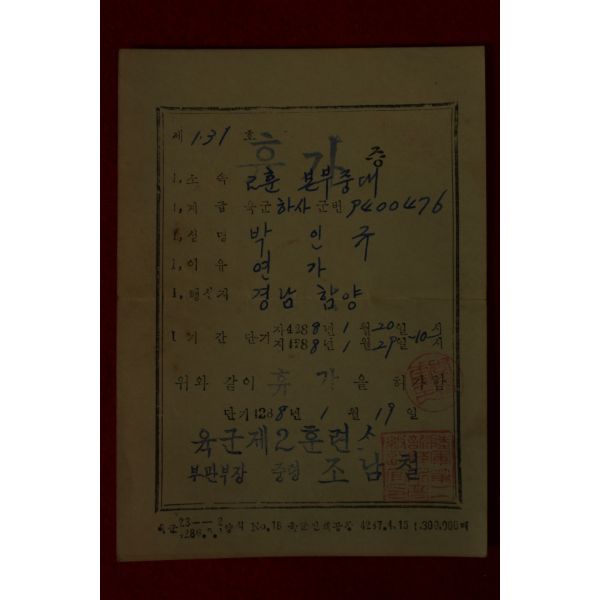 제 1.31 호
휴가증
1,소속 2훈 본부중대
1,계급 육군 하사 군번 9400476
1,성명 박인규
1,이유 연가
1,행선지 경남 함양
1기간 단기 자4288년 1월 20일
지4288년 1월 29일 10시
위와 같이 휴가을 허가함
단기4288년 1월 19일
육군제2훈련소
부관부장 중령 조남철
No.16 4287.4.15 1.300.000매